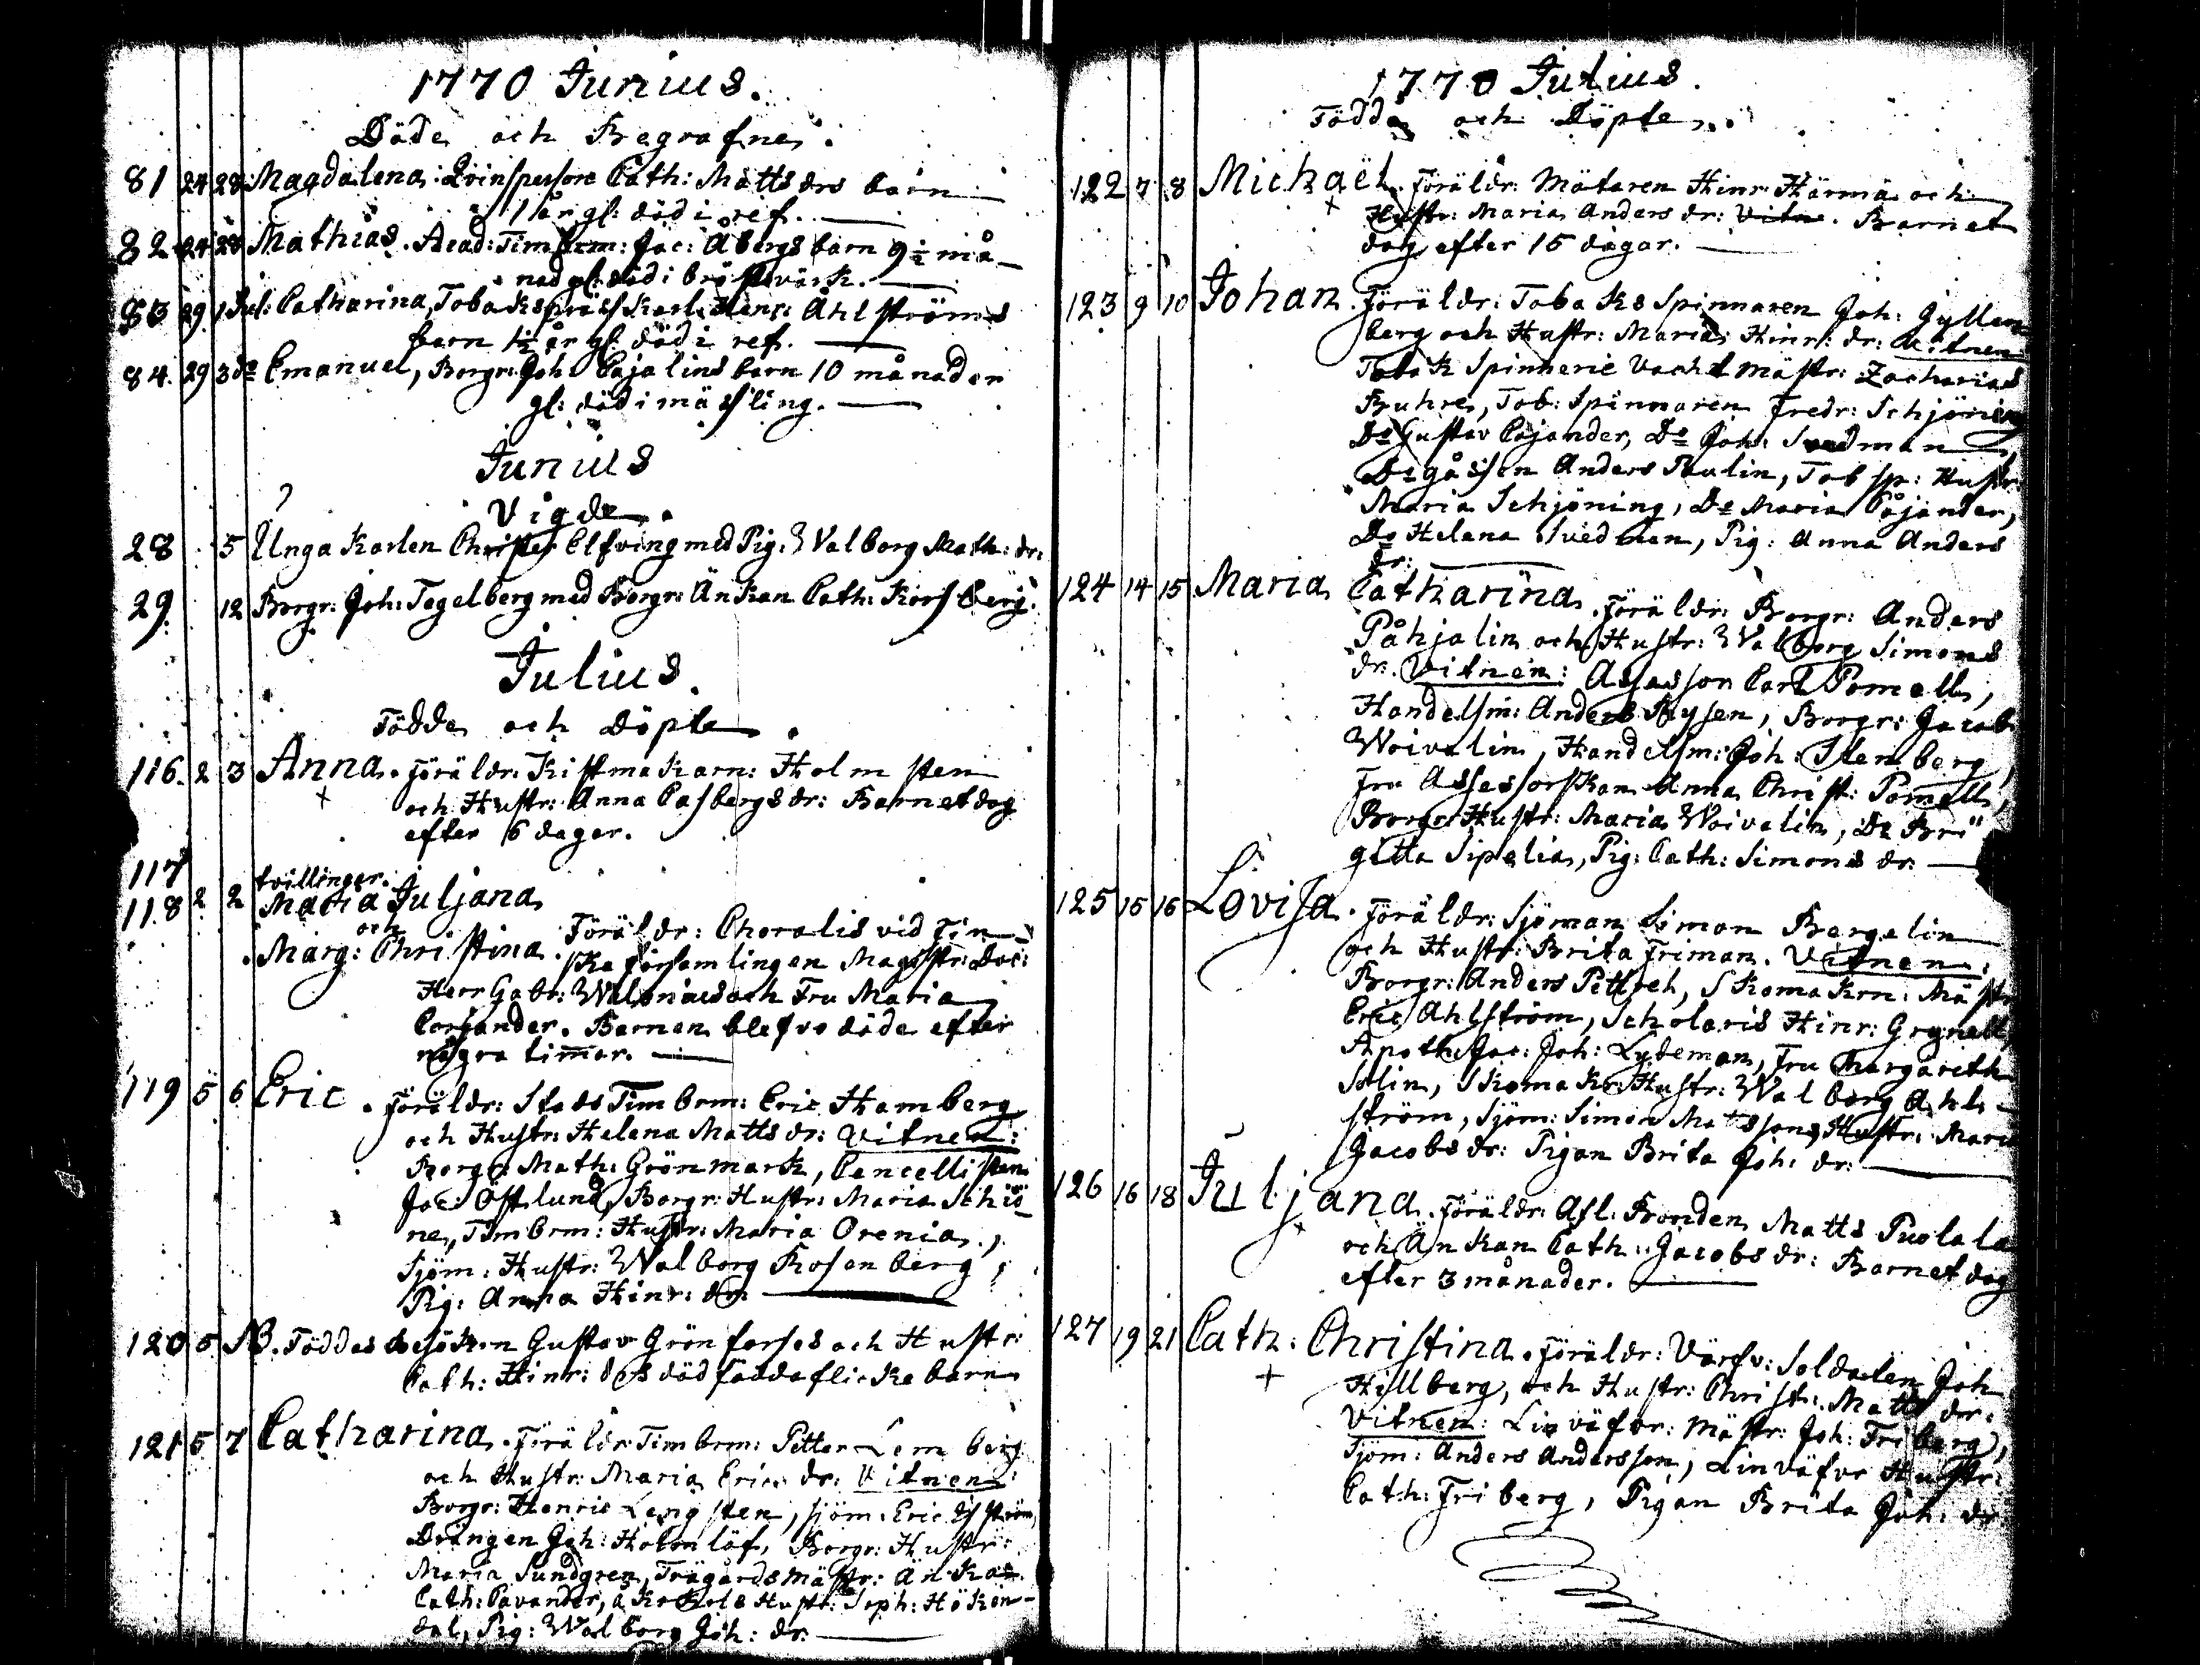 1770 Junius.
Döde och Begrafne.
81 24 28 Magdalena. Qvinspersons Cath: Matts drs barn
1 år gl: död i ref.
82 24 28 Mathias. Acad: Timbrm: Jac: Åbergs barn 9 1/2 må-
nad gl: död i bröstvärk.
83 29 1 Jul: Catharina, Tobaks Henr: Ahlströms
barn 1 1/2 år gl: död i ref.
84. 29 3 do Emanuel, Borgr: Joh: Cajalins barn 10 månader
gl: död i mässling.
Junius
Vigde.
28 5 Unga Karlen Christer Elfving med Pig: Walborg Math: dr:
29. 12 Borgr: Joh: Tegelberg med Borgr: Änkan Cath: Korsberg.
Julius.
Födde och Döpte.
116. 2 3 Anna. Föräldr: Kistmakarn: Holmsten
+ och Hustr: Anna Casbergs dr: Barnet dog
efter 6 dagar.
117 tvillingar.
118 2 2 Maria Juljana
och
Marg: Christina. Föräldr: Choralis vid Fin-
ska församlingen Magistr: Doc:
Herr Gabr: och Fru Maria
. Barnen blefvo döde efter
några timmar.
119 5 6 Eric. Föräldr: Stads Timbrm: Eric Hamberg
och Hustr: Helena Matts dr: Vitnen:
Borgr: Math: Grönmark, Cancellisten
Jac: Östlund, Borgr: Hustr: Maria Schiö-
ne, Timbrm: Hustr: Maria Orenia,
Sjöm: Hustr: Walborg Rosenberg,
Pig: Anna Hinr: dr:
120 5 NB. Föddes Gustav Grönforses och Hustr:
Cath: Hinr: drs dödfödda flickebarn
121 5 7 Catharina. Föräldr: Timbrm: Petter Lemberg
och Hustr: Maria Erics dr: Vitnen:
Borgr: Henric Lengsten, Sjöm: Eric
Drängen Joh: Holmlöf, Borgr: Hustr:
Maria Sundgren, Trägårdsmästr: Änkan
Cath: Pavander, Hustr: Soph: Höken-
dal, Pig: Walborg Joh: dr:
1770 Julius.
Födde och Döpte.
122 7 8 Michaël. Föräldr: Mätaren Hinr: Härmä och
+ Hustr: Maria Anders dr: Vitne. Barnet
dog efter 15 dagar.
123 9 10 Johan. Föräldr: Tobaks Spinnaren Joh: Gyllen
berg och Hustr: Maria Hinr: dr: Vitnen
Tobak Spinnerie Vachtmästr: Zacharias
Buhre, Tob: Spinnaren Fredr: Schjöning
Do Gustav Cajander, Do Joh: Svedman
Do gåssen Anders Paulin, Tob sp: Hustr:
Maria Schjöning, Do Maria Cajander,
Do Helena Svedman, Pig: Anna Anders
dr:
124 14 15 Maria Catharina. Föräldr: Borgr: Anders
Påhjalin och Hustr: Walborg Simons
dr. Vitnen: Assessor Carl Pomell,
Handelsm: Anders Rysen, Borgr: Jacob
Woivalin, Handelsm: Joh: Stenberg,
Fru Assessorskan Anna Christ: Pomell,
Borgr: Hustr: Maria Woivalin, Do Bri-
gitta Sipelia, Pig: Cath: Simons dr.
125 15 16 Lovisa. Föräldr: Sjöman Simon Bergelin
och Hustr: Brita Friman. Vitnen:
Borgr: Anders Petlech, Skomakrn: Mästr
Eric Ahlström, Scholaris Hinr: Grynell,
Apoth: Joh: Lydeman, Fru Margareth
Solin, Skomakr: Hustr: Walborg Ahl-
ström, Sjöm: Simon Matssons Hustr: Maria
Jacobs dr: Pigan Brita Joh: dr:
126 16 18 Juljana. Föräldr: Afl: Bonden Matts Puolala
+ och Änkan Cath: Jacobs dr: Barnet dog
efter 3 månader.
127 19 21 Cath: Christina. Föräldr: Värfv: Soldaten Joh
+ Hillberg, och Hustr: Christ: Matts dr.
Vitnen: Linväfvr: Mästr: Joh: Friberg,
Sjöm: Anders Andersson, Linväfvr Hustr:
Cath: Friberg, Pigan Brita Joh: dr